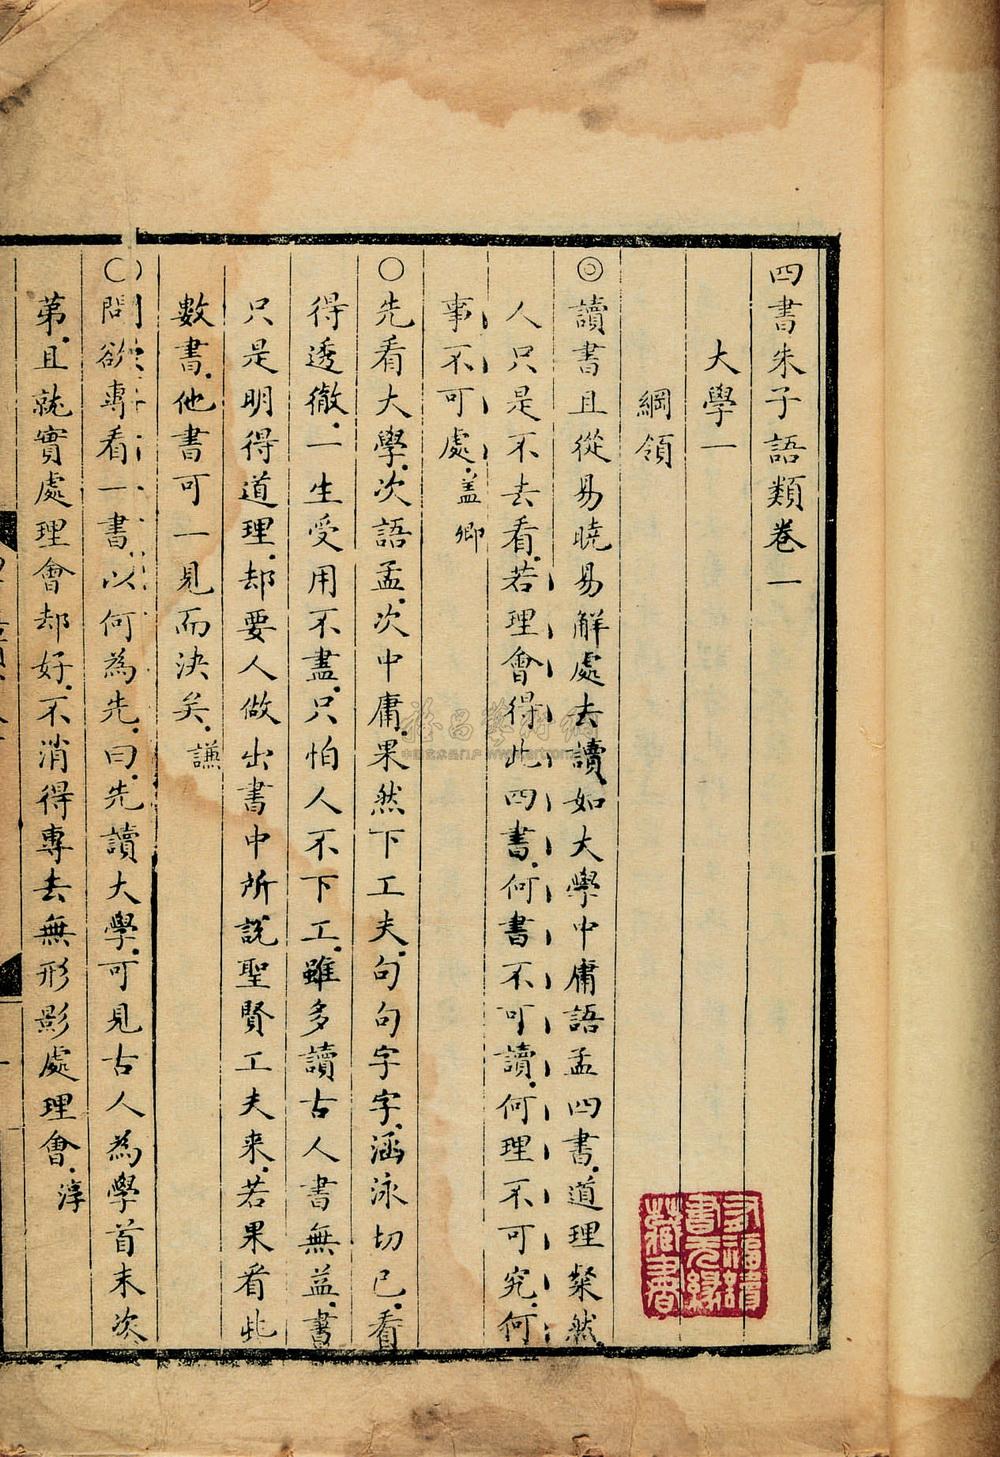 四書朱子語類卷一
大學一
綱領
◎讀書且從易曉易解處去讀如大學中庸語孟四書道理粲然
人只是不去看若理會得此四書何書不可讀何理不可究何
事不可處蓋卿
○先看大學次語孟次中庸果然下工夫句句字字涵泳切己看
得透徹一生受用不盡只怕人不下工雖多讀古人書無益書
只是明得道理却要人做出書中所說聖賢工夫来若果看此
數書他書可一見而決矣謙
○問欲專看一書以何為先曰先讀大學可見古人為學首末次
第且就實處理會却好不消得專去無形影處理會淳